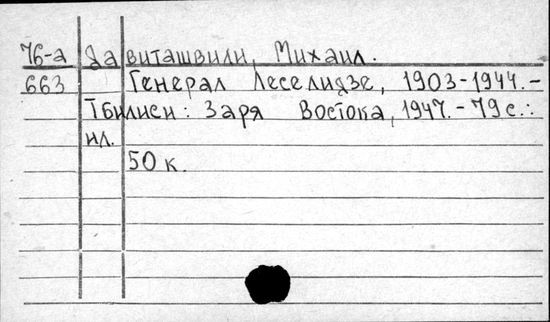 76-а Давиташвили, Михаил.
663 Генерал Леселидзе, 1903-1944.-
Тбилиси: Заря Востока, 1947.-79с.:
ил.
50 к.